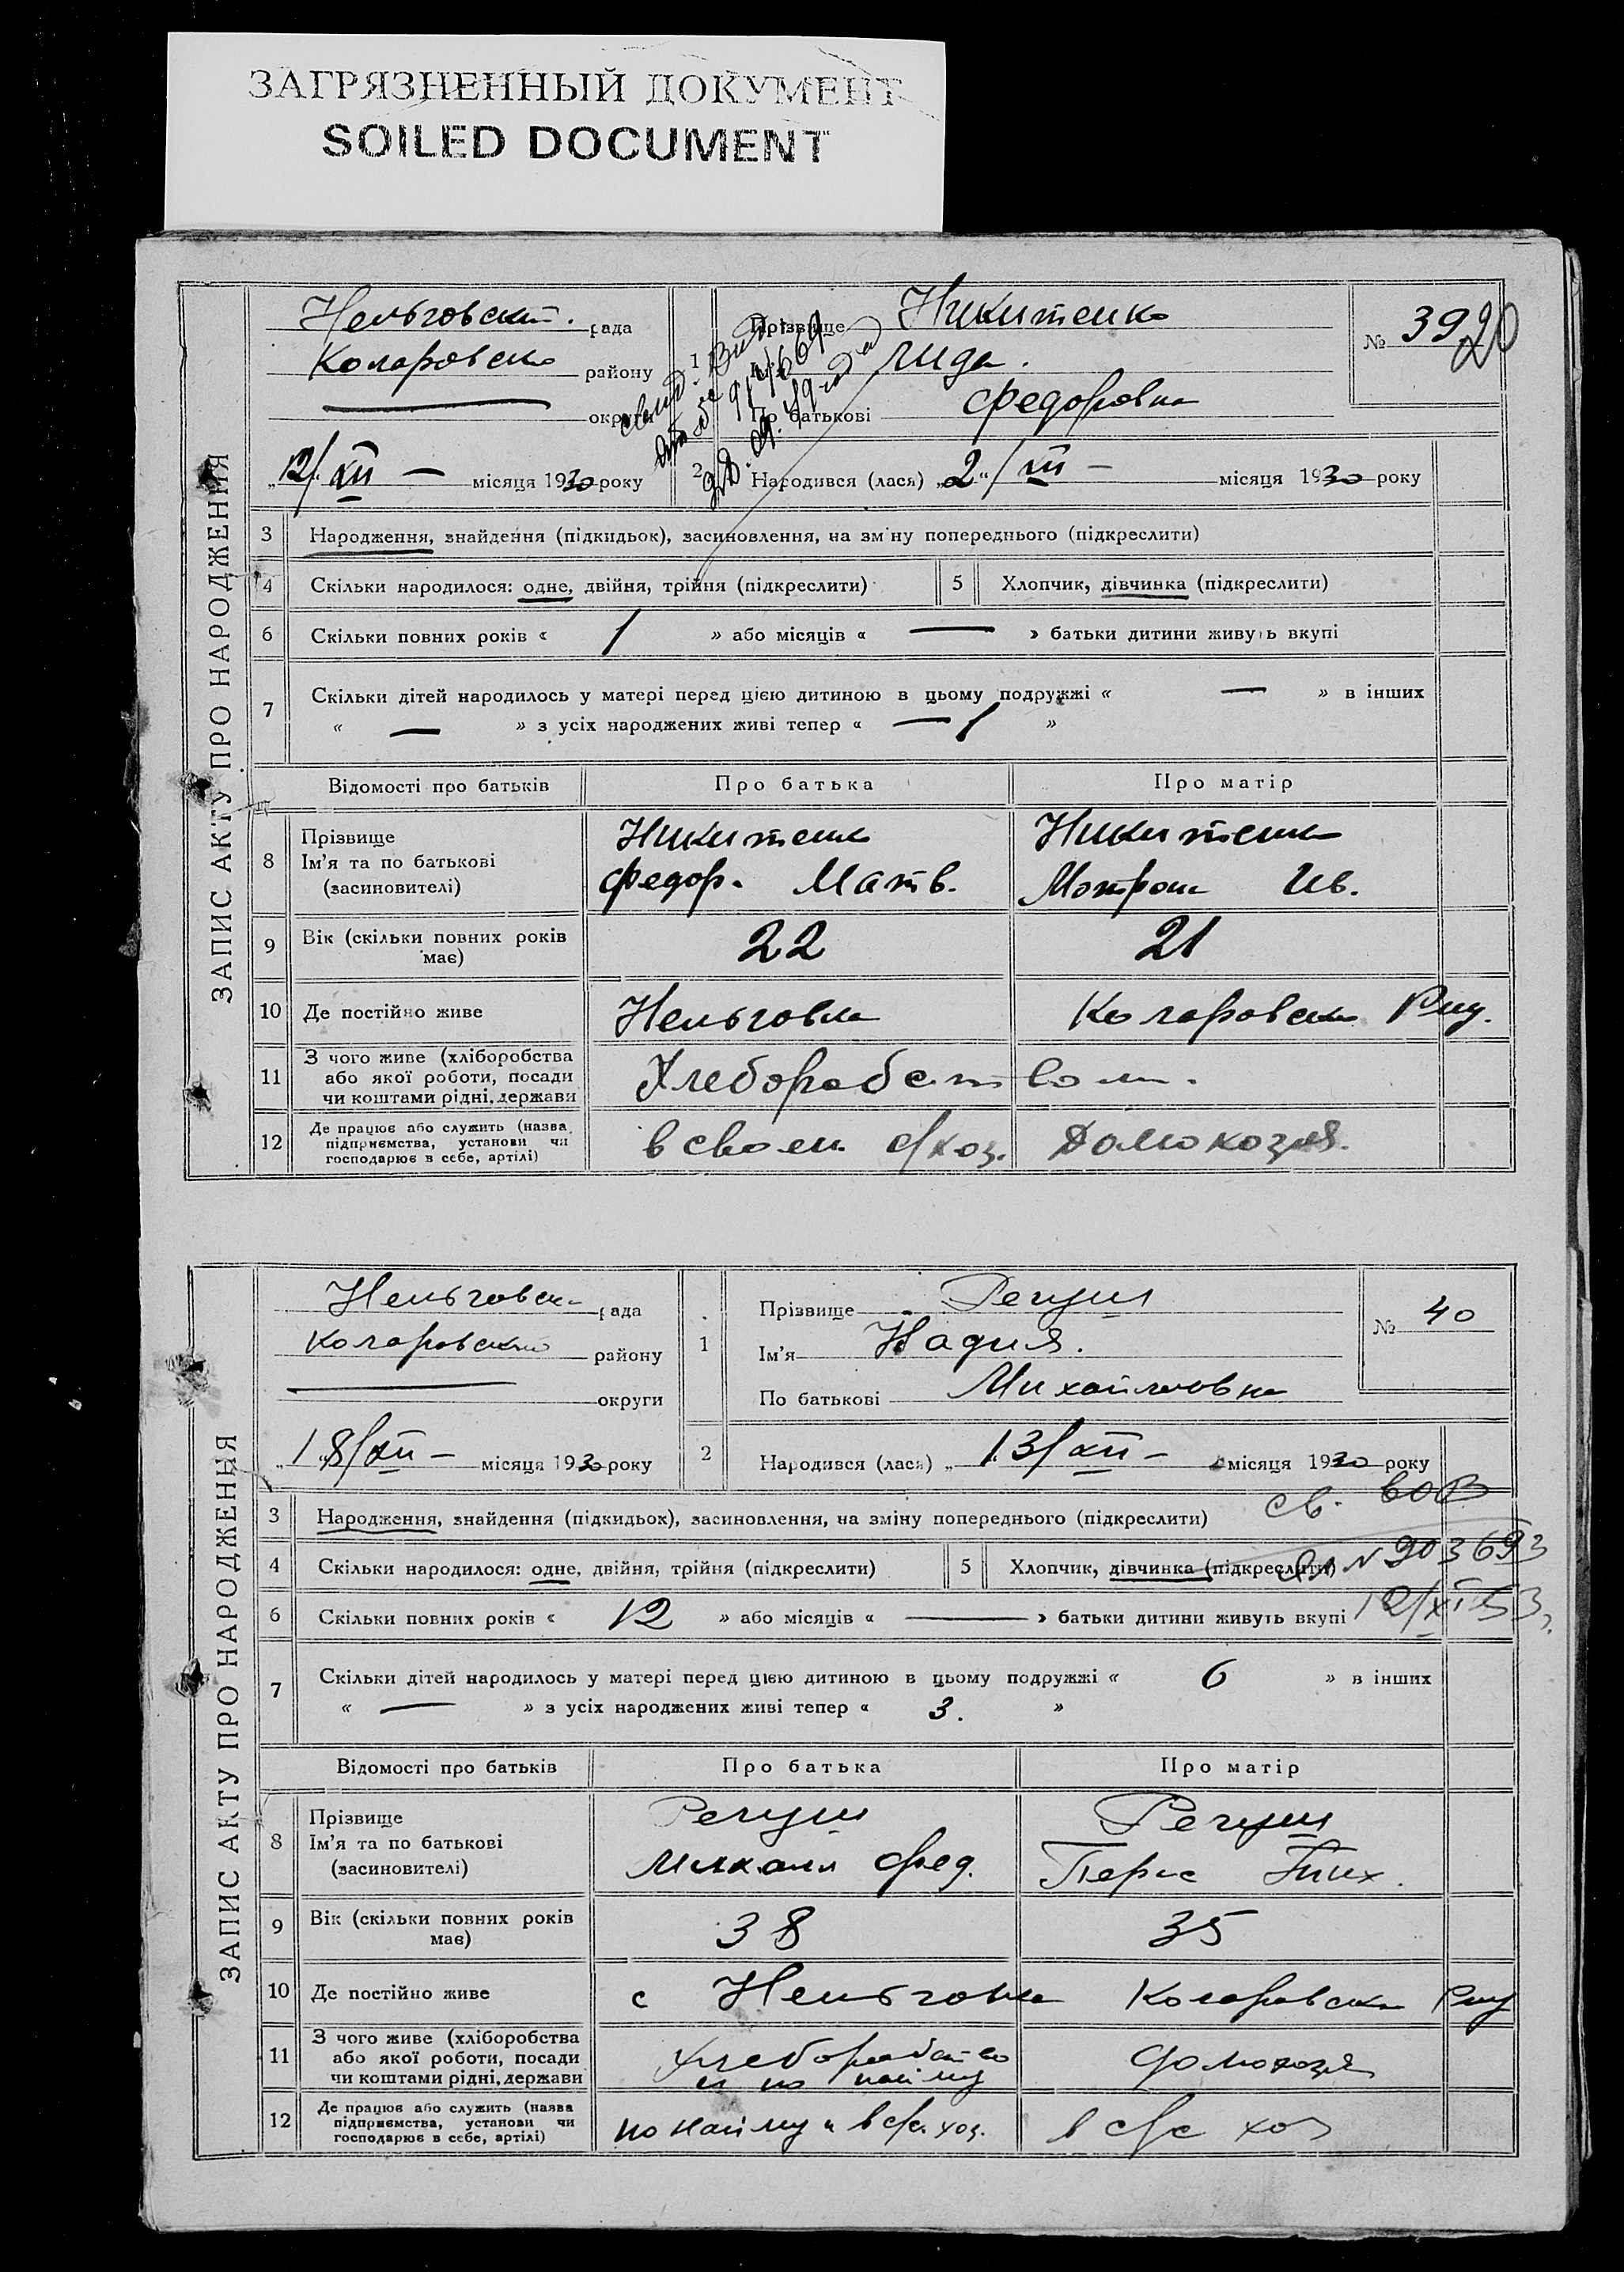 ЗАГРЯЗНЕННЫЙ ДОКУМЕНТ
SOILED DOCUMENT
ЗАПИС АКТУ ПРО НАРОДЖЕННЯ
Нельговский рада
Коларовско району
округи
12/XII — місяця 1930 року
1 Прізвище Никитенко
Лида.
По батькові Федоровна
№ 39 20
2 Народився (лася) „2“/XII — місяця 1930 року
3 Народження, знайдення (підкидьок), засиновлення, на зміну попереднього (підкреслити)
4 Скільки народилося: одне, двійня, трійня (підкреслити) 5 Хлопчик, дівчинка (підкреслити)
6 Скільки повних років « 1 » або місяців « — » батьки дитини живуть вкупі
7 Скільки дітей народилось у матері перед цією дитиною в цьому подружжі « — » в інших
« — » з усіх народжених живі тепер « — 1 »
Відомості про батьків Про батька Про матір
8 Прізвище Никитенко Никитенко
Ім'я та по батькові Федор. Матв. Мотрона Ив.
(засиновителі)
9 Вік (скільки повних років має) 22 21
10 Де постійно живе Нельговка Коларовско
11 З чого живе (хліборобства Хлеборобством.
або якої роботи, посади
чи коштами рідні, держави
12 Де працює або служить (назва в своем с/хоз. Домохозяй.
підприємства, установи чи
господарює в себе, артілі)
ЗАПИС АКТУ ПРО НАРОДЖЕННЯ
Нельговск рада
Коларовский району
округи
18/XII — місяця 1930 року
1 Прізвище
Ім'я Надия.
По батькові Михайловна
№ 40
2 Народився (лася) „13/XII — місяця 1930 року
св.
3 Народження, знайдення (підкидьох), засиновлення, на зміну попереднього (підкреслити)
4 Скільки народилося: одне, двійня, трійня (підкреслити) 5 Хлопчик, дівчинка (підкреслити) N 903693
6 Скільки повних років « 12 » або місяців « — » батьки дитини живуть вкупі 12/XI 53
7 Скільки дітей народилось у матері перед цією дитиною в цьому подружжі « 6 » в інших
« — » з усіх народжених живі тепер « 3. »
Відомості про батьків Про батька Про матір
8 Прізвище
Ім'я та по батькові Михаил Фед. Тих.
(засиновителі)
9 Вік (скільки повних років має) 38 35
10 Де постійно живе с Нельговка Коларовско
11 З чого живе (хліборобства Хлеборобство домохозяй
або якої роботи, посади и по найму
чи коштами рідні, держави
12 Де працює або служить (назва по найму и в с/х. хоз. в с/с хоз
підприємства, установи чи
господарює в себе, артілі)